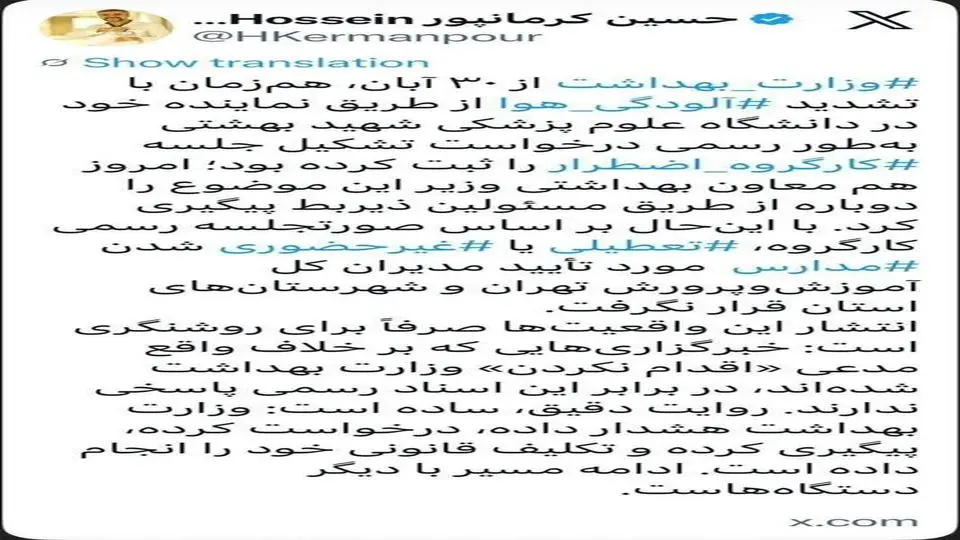 حسین کرمانپور Hossein...
@HKermanpour
Show translation
#وزارت_بهداشت از ۳۰ آبان، هم‌زمان با
تشدید #آلودگی_هوا از طریق نماینده خود
در دانشگاه علوم پزشکی شهید بهشتی
به‌طور رسمی درخواست تشکیل جلسه
#کارگروه_اضطرار را ثبت کرده بود؛ امروز
هم معاون بهداشتی وزیر این موضوع را
دوباره از طریق مسئولین ذیربط پیگیری
کرد. با این‌حال بر اساس صورتجلسه رسمی
کارگروه، #تعطیلی یا #غیرحضوری شدن
#مدارس مورد تأیید مدیران کل
آموزش‌وپرورش تهران و شهرستان‌های
استان قرار نگرفت.
انتشار این واقعیت‌ها صرفاً برای روشنگری
است: خبرگزاری‌هایی که بر خلاف واقع
مدعی «اقدام نکردن» وزارت بهداشت
شده‌اند، در برابر این اسناد رسمی پاسخی
ندارند. روایت دقیق، ساده است: وزارت
بهداشت هشدار داده، درخواست کرده،
پیگیری کرده و تکلیف قانونی خود را انجام
داده است. ادامه مسیر با دیگر
دستگاه‌هاست.
x.com